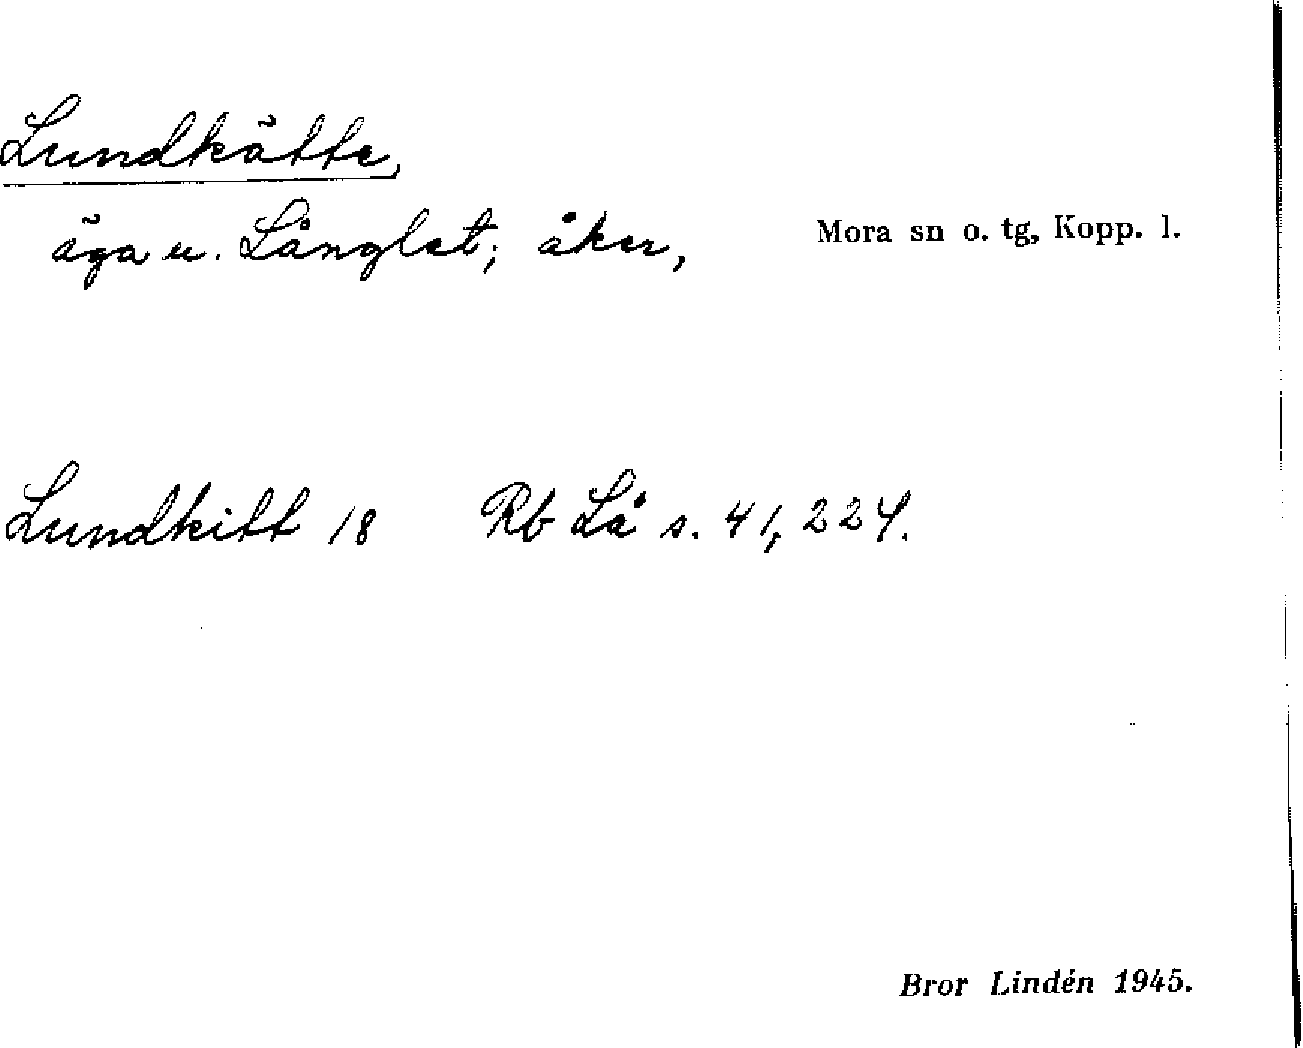 Lundkätte,
äga u. Långlet; åker, Mora sn o. tg, Kopp. l.
Lundkitt 18 Rb Lå s. 41, 224.
Bror Lindén 1945.